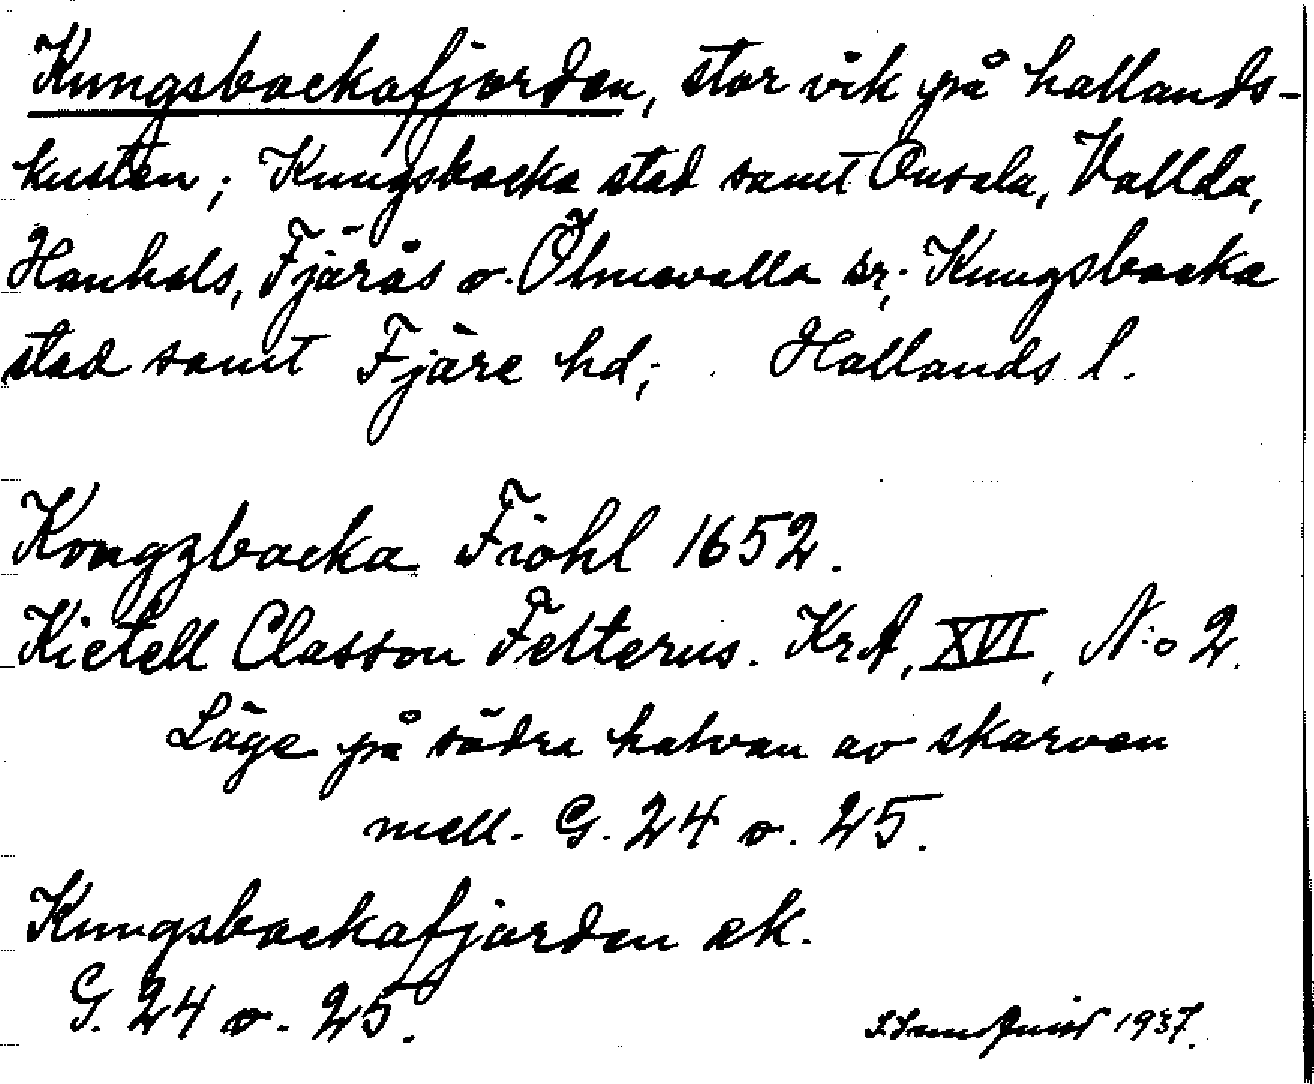 Kungsbackafjorden, stor vik på hallands-
kusten; Kungsbacka stad samt Onsala, Vallda,
Hanhals, Fjärås o. Ölmevalla sr; Kungsbacka
stad samt Fjäre hd; Hallands l.
Kongzbacka Fiöhl 1652.
Kietell Classon Felterus. KrA, XVI, N:o 2.
Läge på södra halvan av skarven
mell. G. 24 o. 25.
Kungsbackafjorden ek.
G. 24 o. 25.
1937.